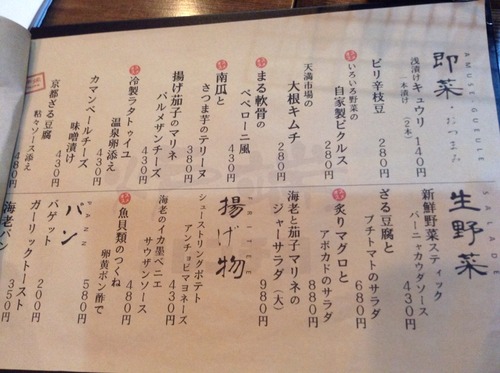 AMUSE GUEULE
即菜・おつまみ
浅漬けキュウリ 140円
一本漬け(2本)
ピリ辛枝豆 280円
いろいろ野菜の
自家製ピクルス 280円
天満市場の
大根キムチ 280円
まる軟骨の
ペペローニ風 430円
南瓜と
さつま芋のテリーヌ 380円
揚げ茄子のマリネ
パルメザンチーズ 430円
冷製ラタトゥイユ
温泉卵添え 430円
カマンベールチーズ
味噌漬け 430円
京都ざる豆腐
粘々ソース添え 480円
SALAD
生野菜
新鮮野菜スティック
バーニャカウダソース 430円
ざる豆腐と
プチトマトのサラダ 680円
炙りマグロと
アボカドのサラダ 880円
海老と茄子マリネの
ジャーサラダ(大) 980円
FRITEE
揚げ物
シューストリングポテト
アンチョビマヨネーズ 430円
海老のイカ墨ベニエ
サウザンソース 480円
魚貝類のつくね
卵黄ポン酢で 580円
PANN
パン
バゲット 200円
ガーリックトースト 350円
海老パン